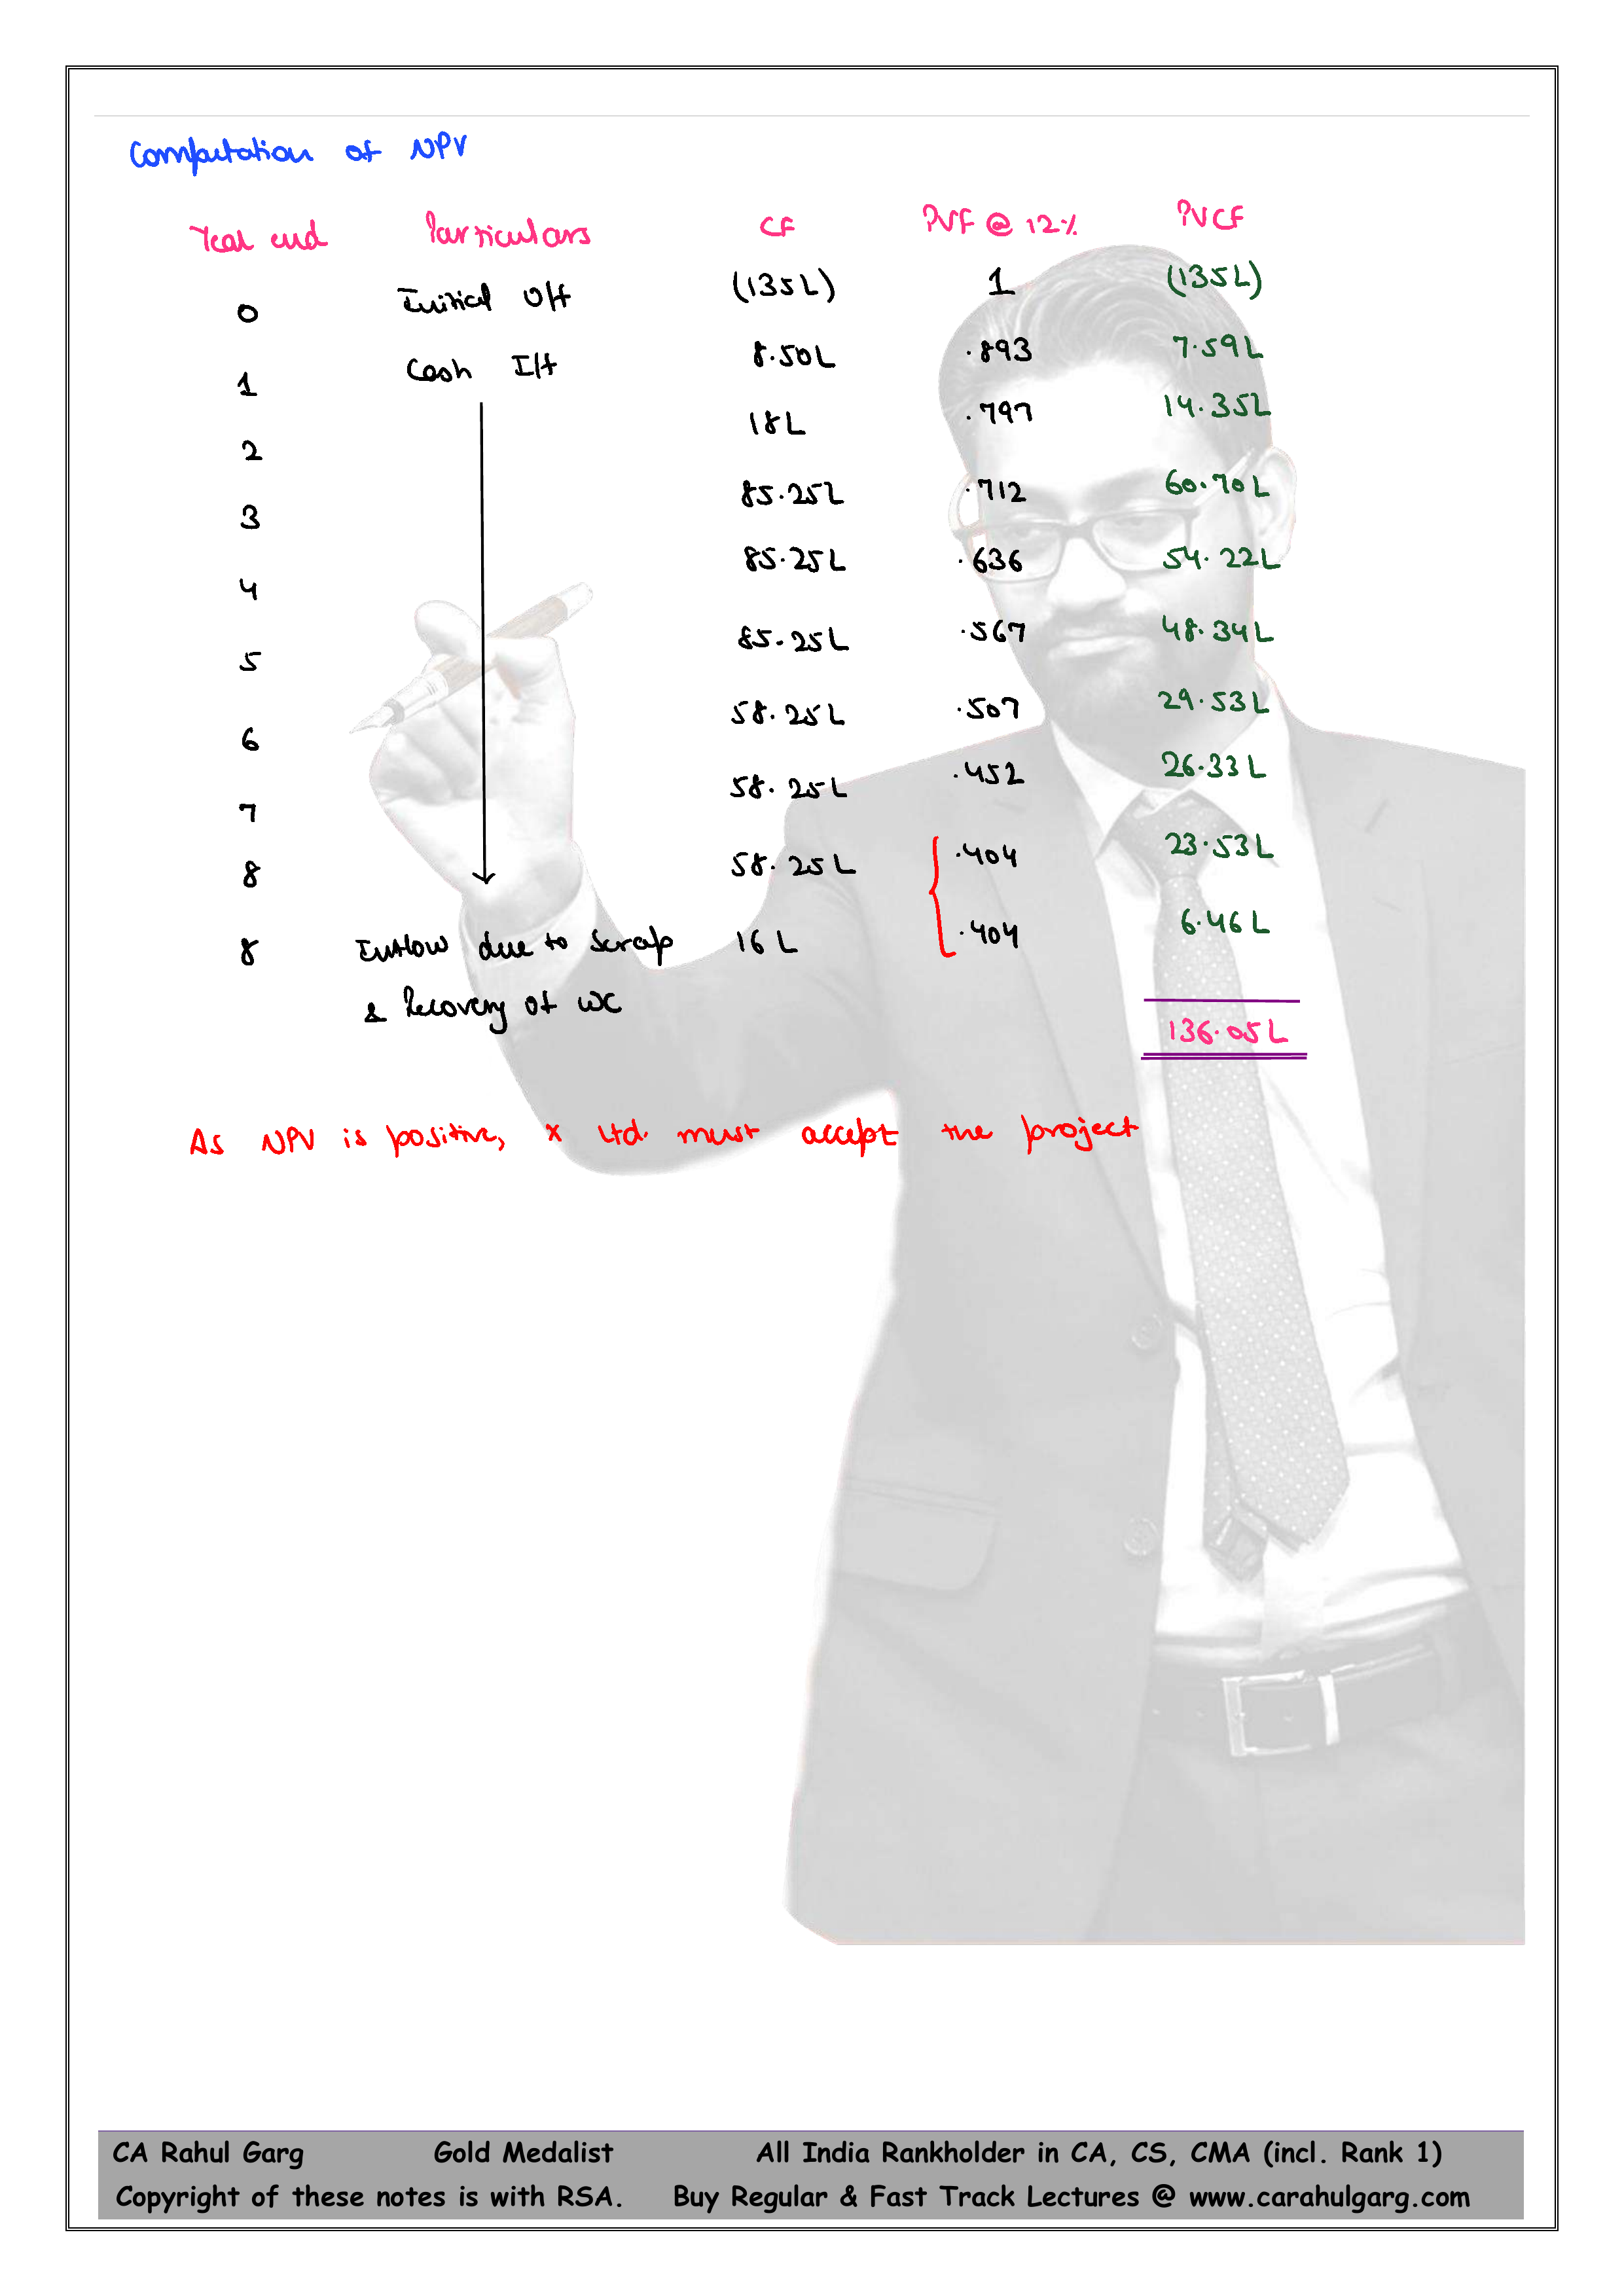 Computation of NPV
Year end Particulars CF PVF @ 12% PVCF
0 Initial O/f (135L) 1 (135L)
1 Cash I/f 8.50L .893 7.59L
2 18L .797 14.35L
3 85.25L .712 60.70L
4 85.25L .636 54.22L
5 85.25L .567 48.34L
6 58.25L .507 29.53L
7 58.25L .452 26.33L
8 58.25L .404 23.53L
8 Inflow due to Scrap 16L .404 6.46L
& Recovery of WC
136.05L
As NPV is positive, X Ltd. must accept the project
CA Rahul Garg Gold Medalist All India Rankholder in CA, CS, CMA (incl. Rank 1)
Copyright of these notes is with RSA. Buy Regular & Fast Track Lectures @ www.carahulgarg.com